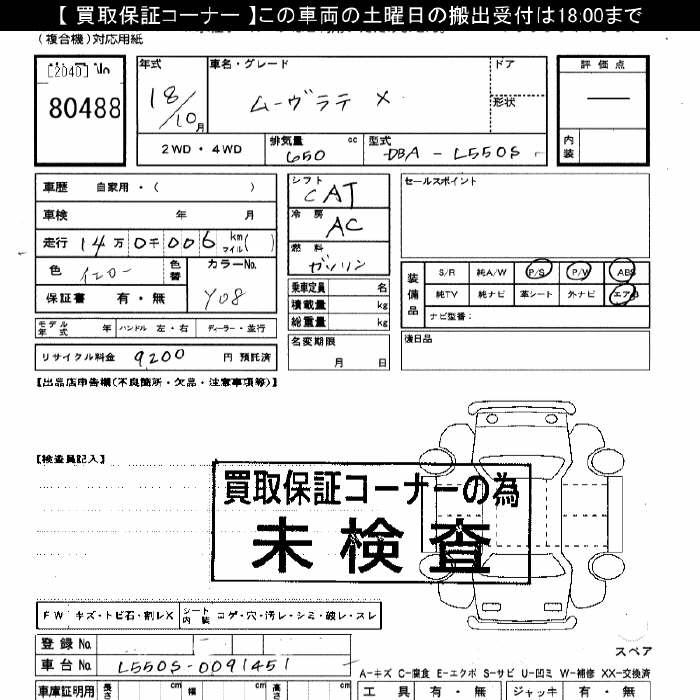 【 買取保証コーナー 】この車両の土曜日の搬出受付は18:00まで
(複合機)対応用紙
[2040] No
80488
年式
18/10月
車名・グレード
ムーヴラテ X
ドア
形状
2WD ・ 4WD
排気量
650 cc
型式
DBA - L550S
評価点
内装
車歴 自家用・( )
車検 年 月
走行 14万0千006 km マイル( )
色 イエロー
色替
カラーNo.
Y08
保証書 有・無
モデル年式 年
ハンドル 左・右
ディーラー・並行
リサイクル料金 9200 円 預託済
シフト
CAT
冷房
AC
燃料
ガソリン
乗車定員 名
積載量 kg
総重量 kg
名変期限
月 日
セールスポイント
装備品
S/R 純A/W P/S P/W ABS
純TV 純ナビ 革シート 外ナビ エアB
ナビ型番:
後日品
【出品店申告欄(不良箇所・欠品・注意事項等)】
【検査員記入】
買取保証コーナーの為
未検査
FW キズ・トビ石・割レX
シート内装 コゲ・穴・汚レ・シミ・破レ・スレ
登録 No.
車台 No. L550S-0091451
スペア
A-キズ C-腐食 E-エクボ S-サビ U-凹ミ W-補修 XX-交換済
車庫証明用 長さ cm 幅 cm 高さ cm
工具 有・無 ジャッキ 有・無